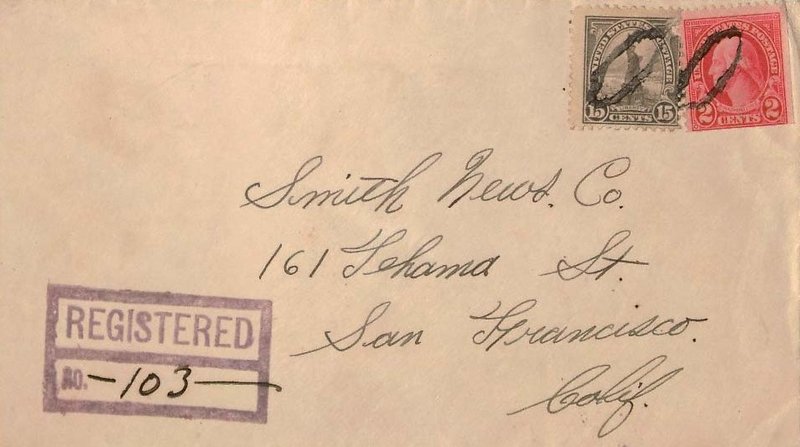 UNITED STATES POSTAGE
15 CENTS 15
2 CENTS 2
Smith News. Co.
161 Tehama St.
San Francisco.
Calif.
REGISTERED
NO. -103-